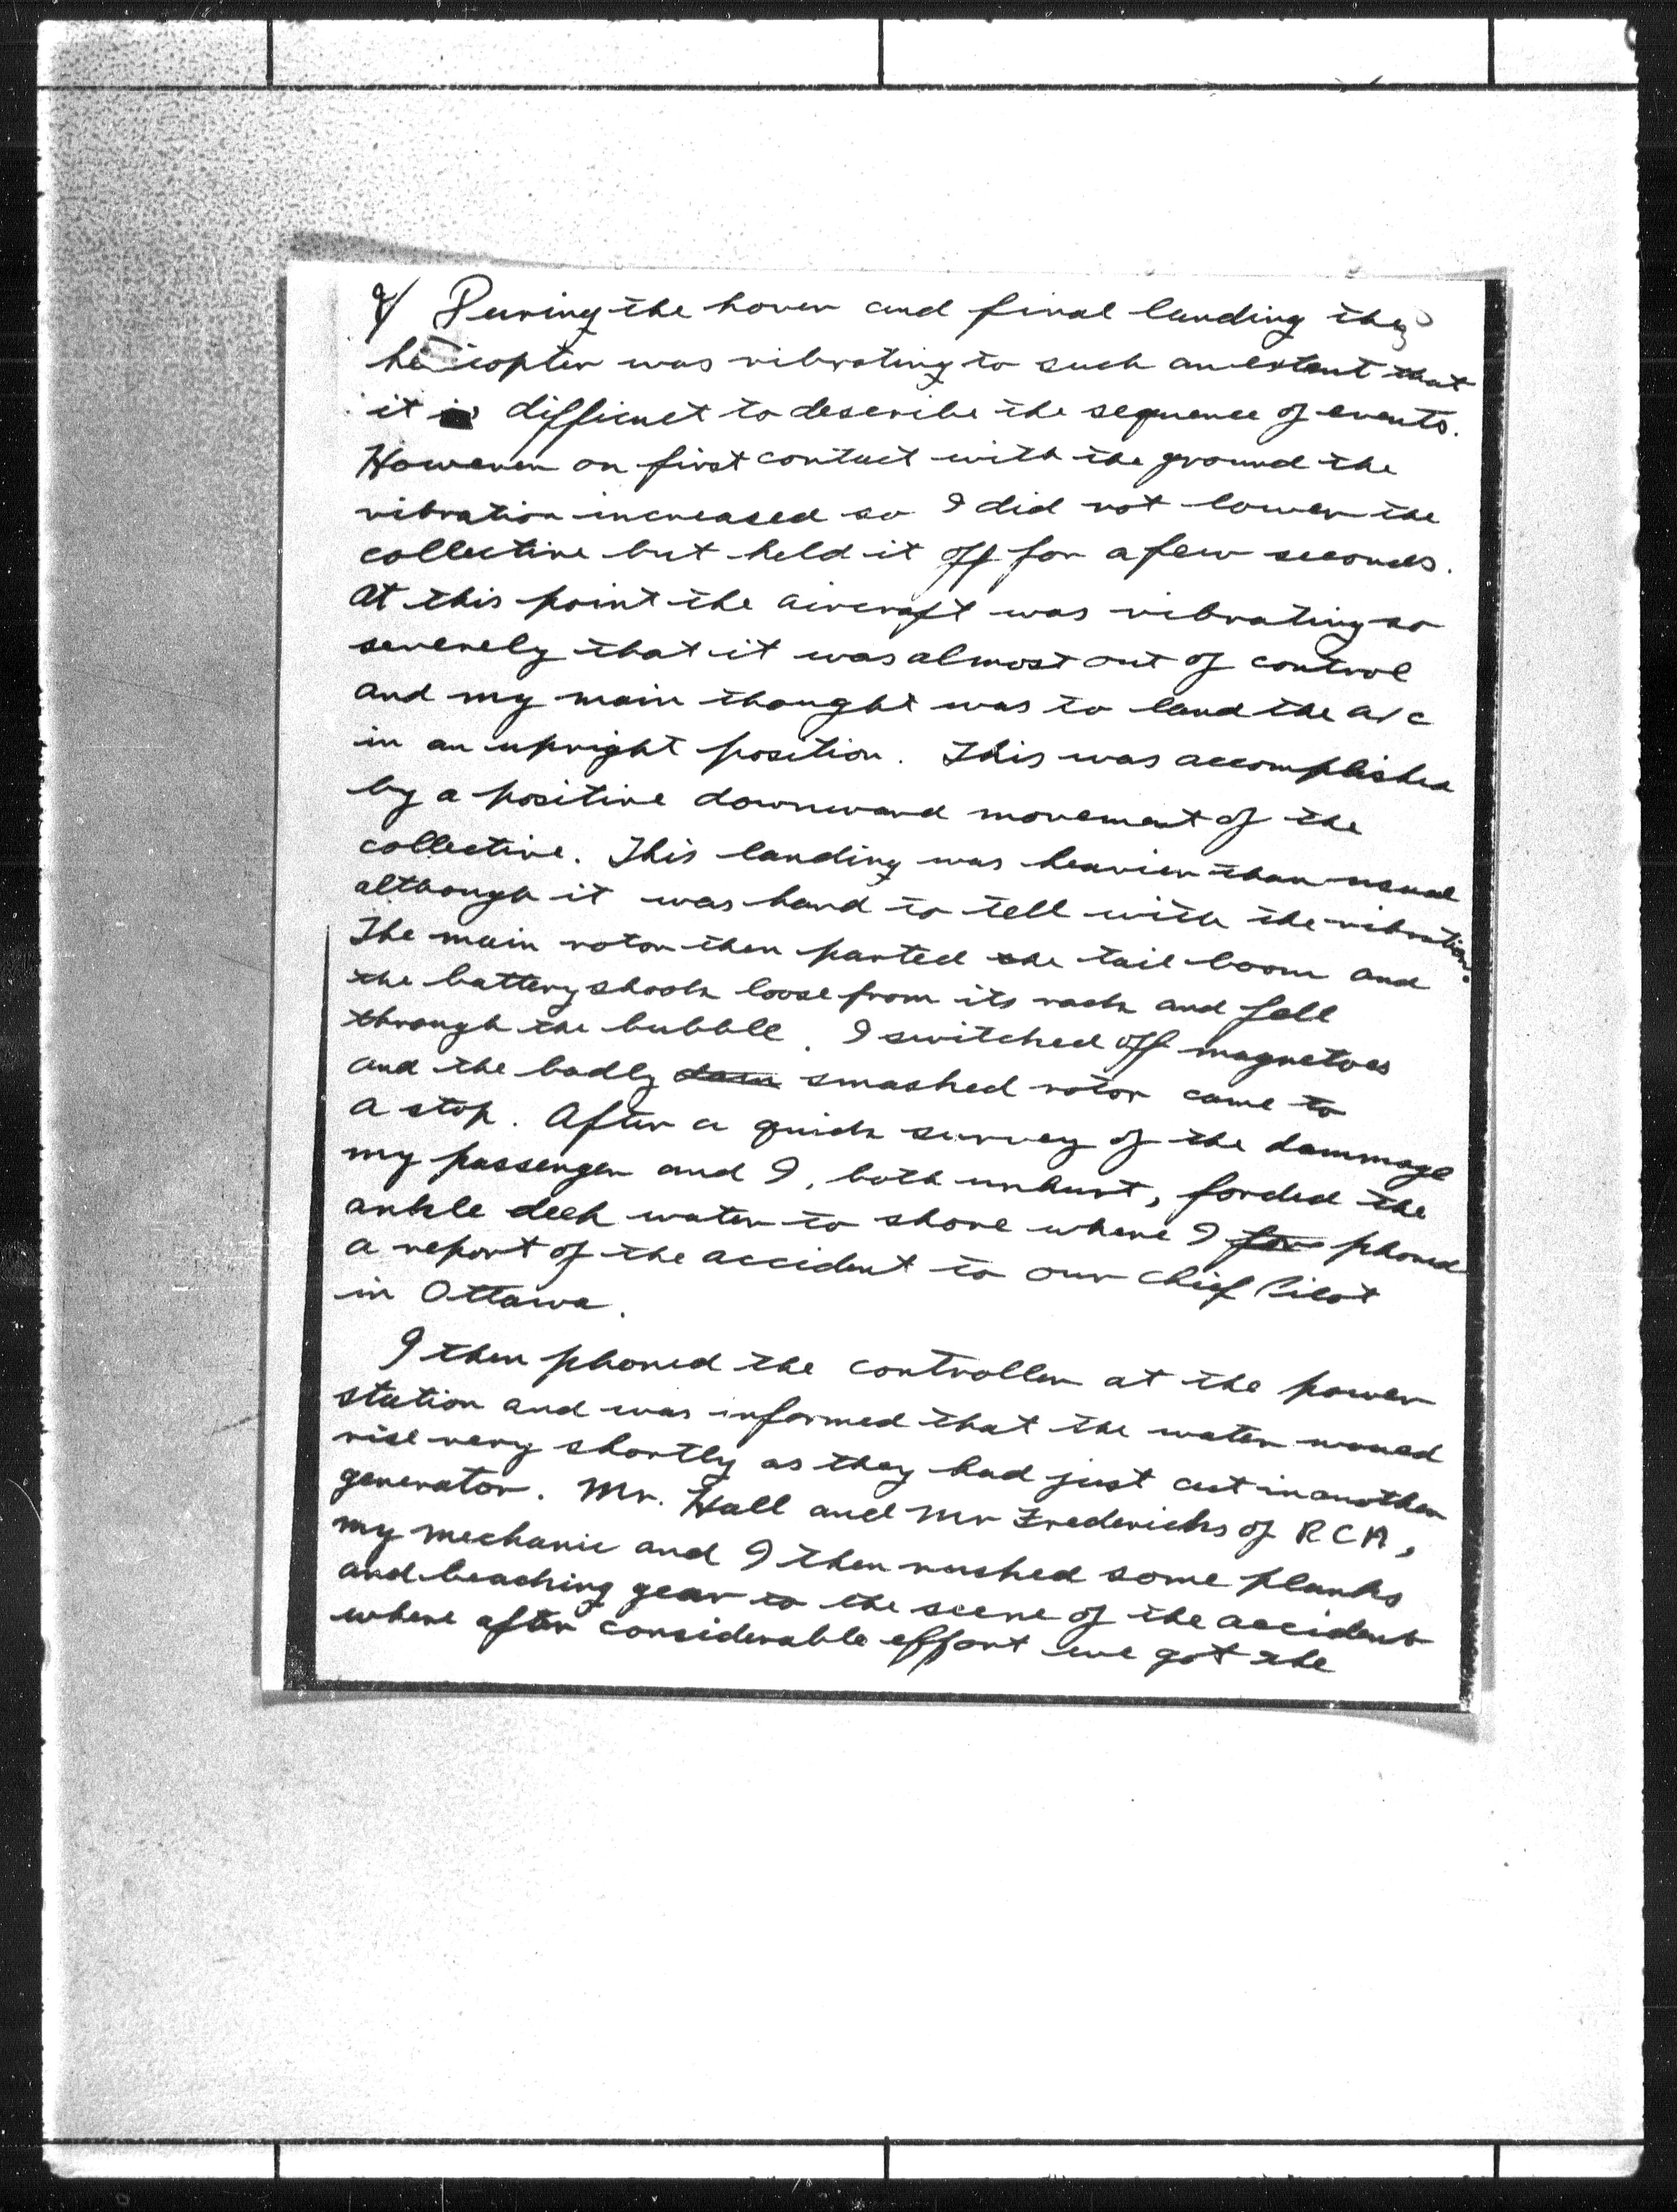 2/ During the hover and final landing the
helicopter was vibrating to such an extent that
it is difficult to describe the sequence of events.
However on first contact with the ground the
vibration increased so I did not lower the
collective but held it off for a few seconds.
At this point the aircraft was vibrating so
severely that it was almost out of control
and my main thought was to land the a/c
in an upright position. This was accomplished
by a positive downward movement of the
collective. This landing was heavier than usual
although it was hard to tell with the vibration.
The main rotor then parted the tail boom and
the battery shook loose from its rack and fell
through the bubble. I switched off magnetoes
and the badly dam smashed rotor came to
a stop. After a quick survey of the dammage
my passenger and I, both unhurt, forded the
ankle deep water to shore where I for phoned
a report of the accident to our Chief Pilot
in Ottawa.
I then phoned the controller at the power
station and was informed that the water would
rise very shortly as they had just cut in another
generator. Mr. Hall and Mr Fredericks of RCA,
my mechanic and I then rushed some planks
and beaching gear to the scene of the accident
where after considerable effort we got the